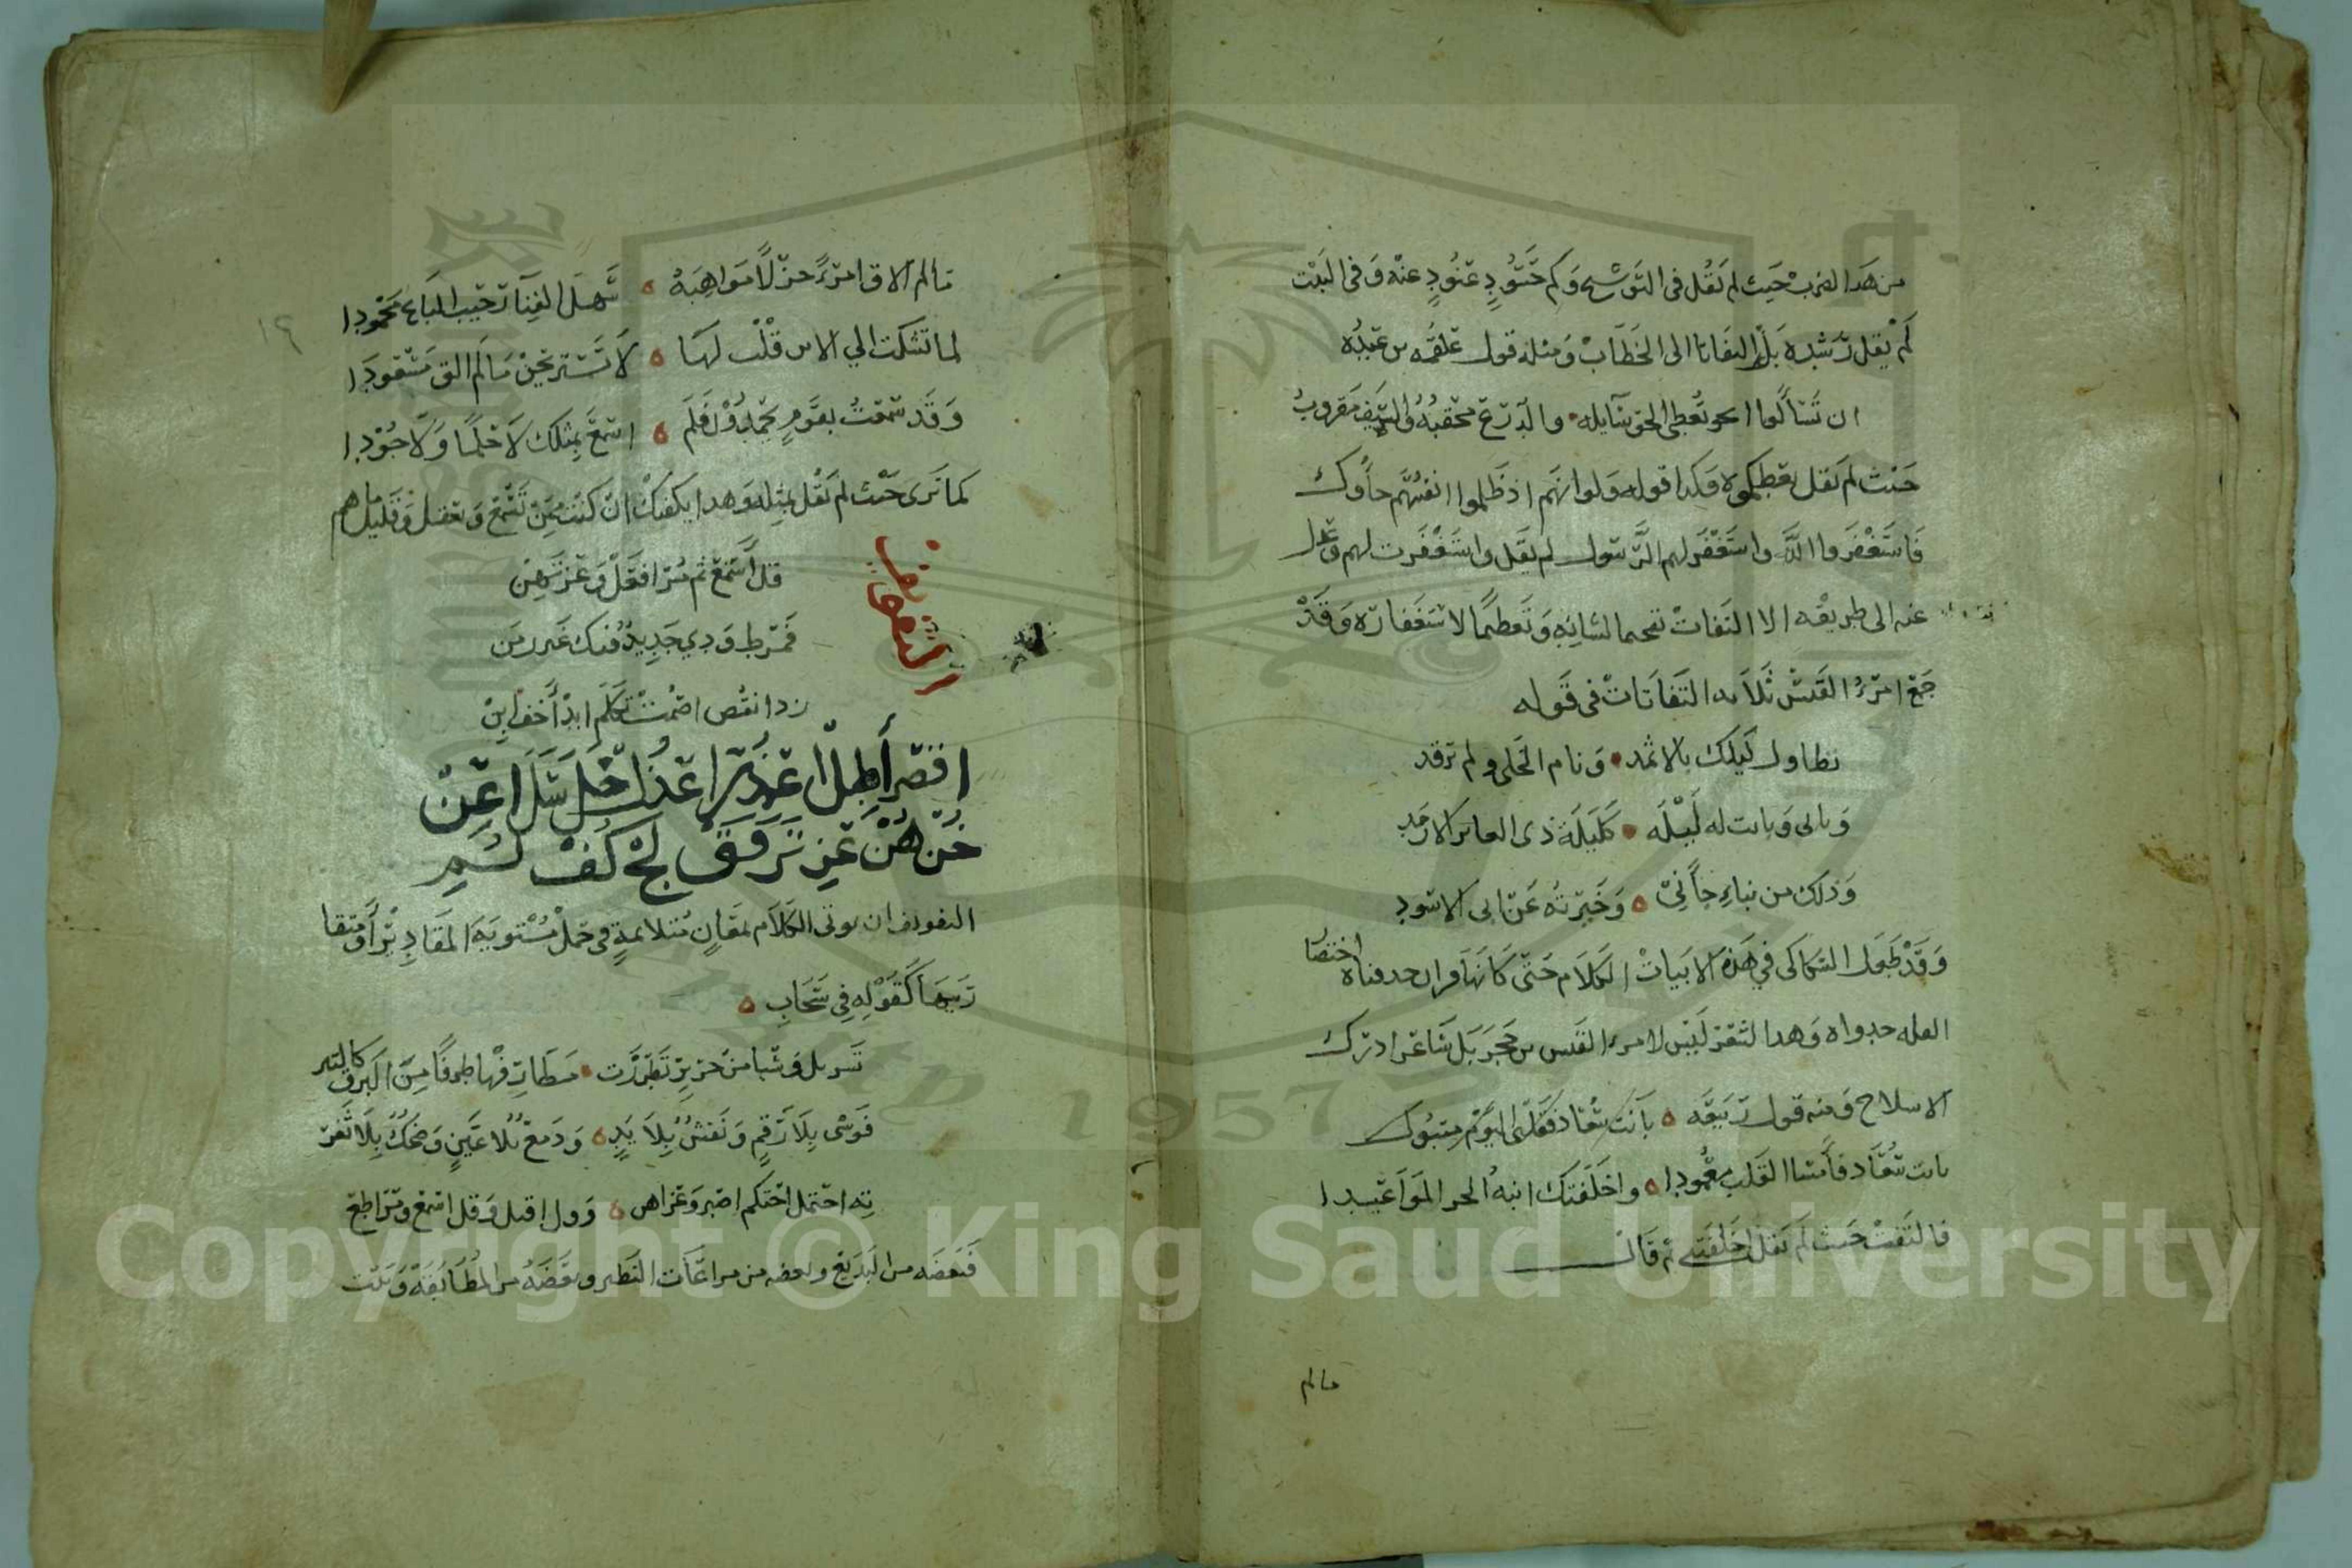 من هذا الضرب حيث لم نقل في التوشيح وكم حسود عنود عنه وفي البيت
لم يقل رشده بل التفاتا الى الخطاب ومثله قول علقمه بن عبده
ان تسألوا الحق نعطي الحق سايله والدرع محقبة والسيف مقروب
حيث لم نقل نعطيكموه وكذا قوله ولو انهم اذ ظلموا انفسهم جاؤك
فاستغفروا الله واستغفر لهم الرسول لم يقل واستغفرت لهم وعدل
عنه الى طريقه الالتفات تفخيما لشانه وتعظيما لاستغفاره وقد
جمع امرؤ القيس ثلاث التفاتات في قوله
تطاول ليلك بالاثمد ونام الخلي ولم ترقد
وبات وباتت له ليله كليلة ذي العاير الارمد
وذلك من نباء جاني وخبرته عن ابي الاسود
وقد طعمل السكاكي في هذه الابيات الكلام حتى كانها قران حدفناه اختصا
العله حدواه وهذا الشعر ليس لامرء القيس بن حجر بل شاعر ادرك
الاسلام ومنه قول ربيعه بانت سعاد فقلبي اليوم متبول
بانت سعاد فأمسا القلب معمودا واخلفتك ابنة الحر المواعيدا
فالتفت حيث لم يقل اخلفتني ثم قال
مالم
١٩
مالم الاق امرءً جزلًا مواهبه سهل الفنآ رحيب الباع محمودا
لما تشكت الي الاين قلت لها لا تستريحن مالم الق مسعودا
وقد سمعت بقوم يحمدون فلم اسمع بمثلك لا حلمًا ولا جودا
كما ترى حيث لم نقل بمثله وهذا يكفيك ان كنت ممن تسمع وتعقل وقليل ماهم
التفويف
قل أسمع ثم مر افعل وعز تهن
فمرط ودي جديد فيك غير رمن
زد انقص اصمت تكلم ابد أخف ابن
اقصر أطل اعذر اعذل خل سل اعن
خن هن عز ترفق لج كف لم
التفويف ان يوتى الكلام بمعان متلايمة في جمل مستوية المقادير أو متقا
ربتها كقوله في سحاب
تسربل وشيا من حرير تطرزت مطارفها طرفا من البرق كالتبر
فوشى بلا رقم ونقش بلا يد ودمع بلا عين وضحك بلا ثغر
ته احتمل احتكم اصبر وعز اهن وول اقبل وقل اسمع ومر اطع
فبعضه من البديع وبعضه من مراعات النظير وبعضه من المطابقه وبيت
Copyright © King Saud University
1957